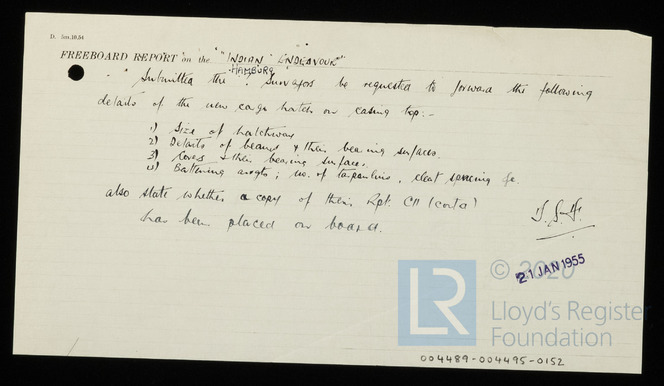 D. Jan. 10.54
FREEBOARD REPORT on the "INDIAN ENDEAVOUR"
"Submitted the HAMBURG Surveyors be requested to forward the following
details of the new cargo hatch on casing top:-
1) Size of hatchway
2) Details of beams & their bearing surfaces.
3) Covers & their bearing surfaces.
4) Battening arrgts; no. of tarpaulins, cleat spacing &c.
also state whether a copy of their Rpt. C11
has been placed on board.
21 JAN 1955
© 2020
LR
Lloyd's Register
Foundation
004489-004495-0152